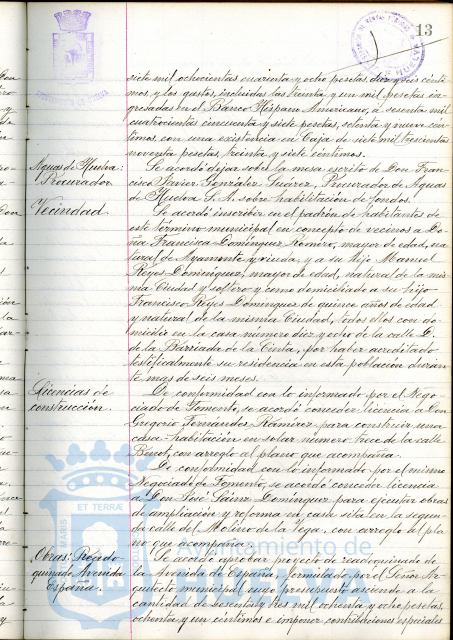 13
siete mil ochocientas cuarenta y ocho pesetas diez y seis cénti-
mos, y los gastos, incluidas las treinta y un mil pesetas in-
gresadas en el Banco Hispano Americano, a sesenta mil
cuatrocientas cincuenta y siete pesetas, setenta y nueve cén-
timos, con una existencia en Caja de siete mil trescientas
noventa pesetas, treinta y siete céntimos.
Aguas de Huelva:
Procurador
Se acordó dejar sobre la mesa escrito de Don Fran-
cisco Javier González Suárez, Procurador de Aguas
de Huelva S. A. sobre habilitación de fondos.
Vecindad
Se acordó inscribir en el padrón de habitantes de
este término municipal en concepto de vecinos a Do-
ña Francisca Domínguez Romero, mayor de edad, na-
tural de Ayamonte y viuda, y a su hijo Manuel
Reyes Domínguez, mayor de edad, natural de la mis-
ma Ciudad y soltero y como domiciliado a su hijo
Francisco Reyes Domínguez de quince años de edad
y natural de la misma Ciudad, todos ellos con do-
micilio en la casa número diez y ocho de la calle D.
de la Barriada de la Cinta, por haber acreditado
testificalmente su residencia en esta población duran-
te más de seis meses.
Licencias de
construcción.
De conformidad con lo informado por el Nego-
ciado de Fomento, se acordó conceder licencia a Don
Gregorio Fernández Ramírez para construir una
casa-habitación en solar número trece de la calle
Benot, con arreglo al plano que acompaña.
De conformidad con lo informado por el mismo
Negociado de Fomento, se acordó conceder licencia
a Don José Sainz Domínguez para ejecutar obras
de ampliación y reforma en casa sita en la segun-
da calle del Molino de la Vega, con arreglo al pla-
no que acompaña.
Obras: Readoquinado Avenida
España.
Se acordó aprobar proyecto de readoquinado de
la Avenida de España, formulado por el Señor Ar-
quitecto municipal cuyo presupuesto asciende a la
cantidad de sesenta y tres mil ochenta y ocho pesetas,
ochenta y un céntimos e imponer contribuciones especiales
ET TERRÆ
Ayuntamiento de